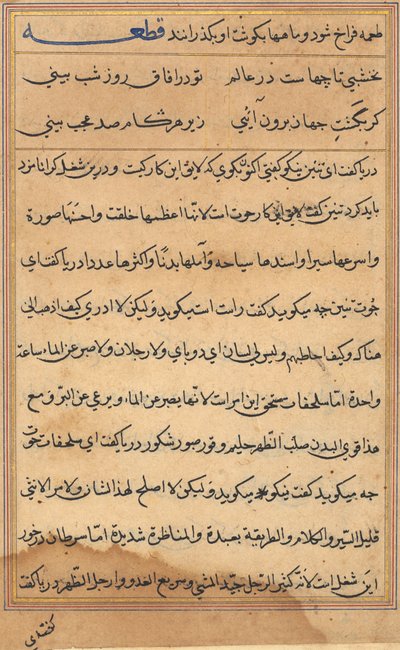 طعمه فراخ شود و ماهیها بکوشت او بکذرانند قطعه
نخشبی تا چهاست در عالم تو در افاق روز شب بینی
کر بکشت جهان برون آئی زیر هر کام صد عجب بینی
دریا کفت ای تنین نیکو کفتی اکنون بکوی که لایق این کار کیست و درین شغل کرا نامزد
باید کرد تنین کفت لایق این کار حوت است لانها اعظمها خلقت و احسنها صورة
و اسرعها سیرا و اسندها سیاحه و آملها بدنا و اکثرها عددا دریا کفت ای
حوت تنین چه میکوید کفت راست است میکوید ولیکن لا ادری کیف اذهب الی
هناکه و کیف اخاطبهم و لیس لی لسان ای دو پای و لا رجلان و لا صبر عن الماء ساعة
واحدة اما سلحفات مستحق این امر است لانها یصبر عن الماء و یرعی عن البر و مع
هذا قوی البدن صلب الظهر حلیم وقور صبور شکور دریا کفت ای سلحفات حوت
چه میکوید کفت نیکو میکوید ولیکن لا اصلح لهذا الشان و لامر لانی
قلیل السیر و الکلام و الطریقة بعیدة و المناظرة شدیدة اما سرطان در خور
این شغل است لانه کثیر الرجل جید المشی و سریع العدو و ارحل الظهر دریا کفت